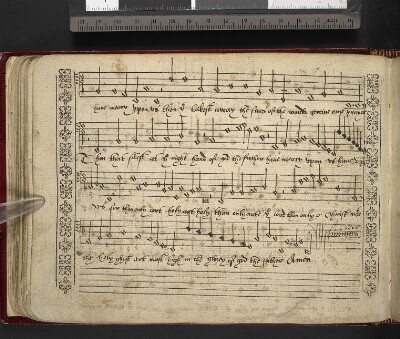 haue mercy vpon vs thou yt takest away the sinnes of the world receiue our prayer
Thou that sittest at ye right hand of god the father haue mercy vpon vs
for thou only art holy thou only art ye lord thou only o Christ
the holy ghost art most high in the glory of god the father Amen